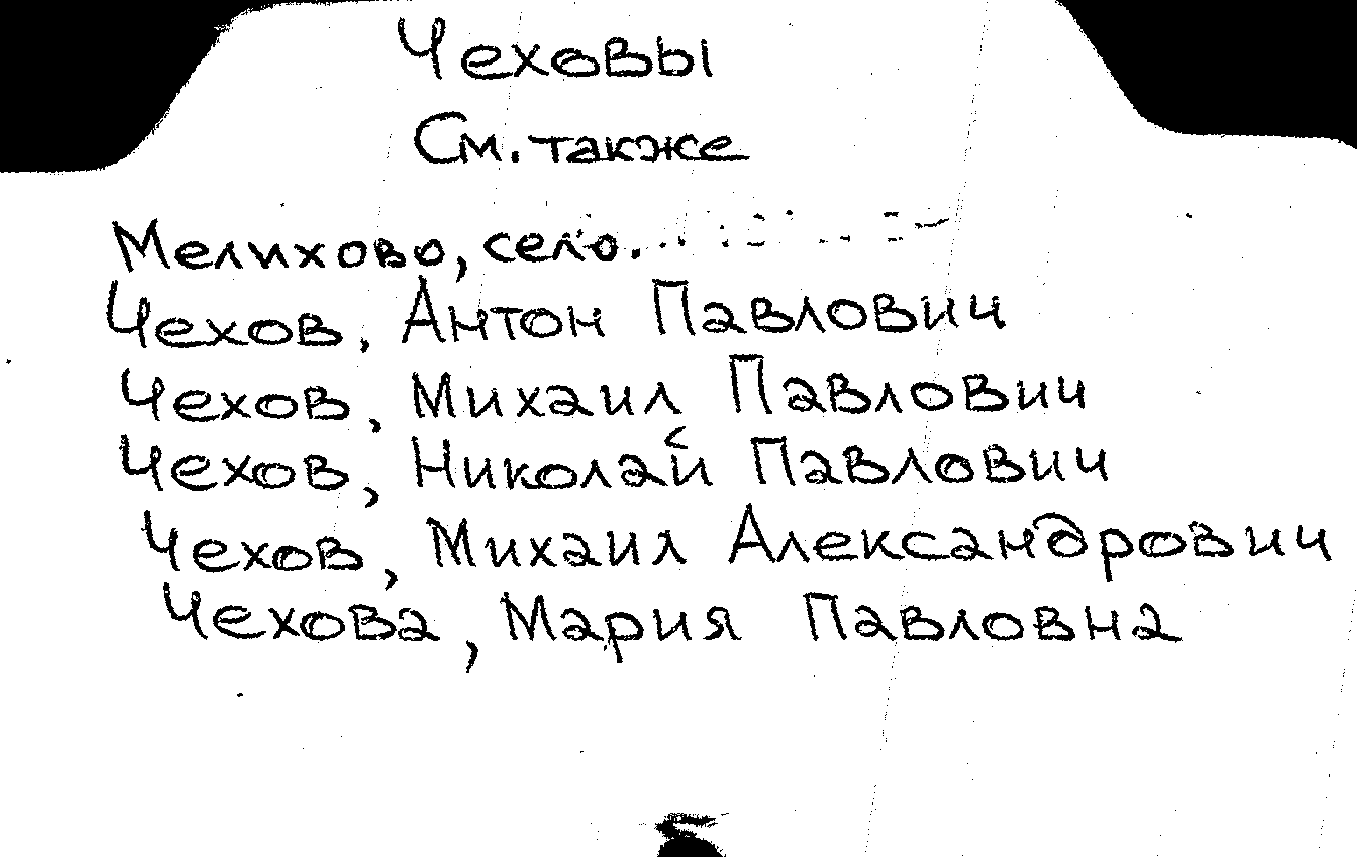 Чеховы
См. также
Мелихово, село.
Чехов, Антон Павлович
Чехов, Михаил Павлович
Чехов, Николай Павлович
Чехов, Михаил Александрович
Чехова, Мария Павловна